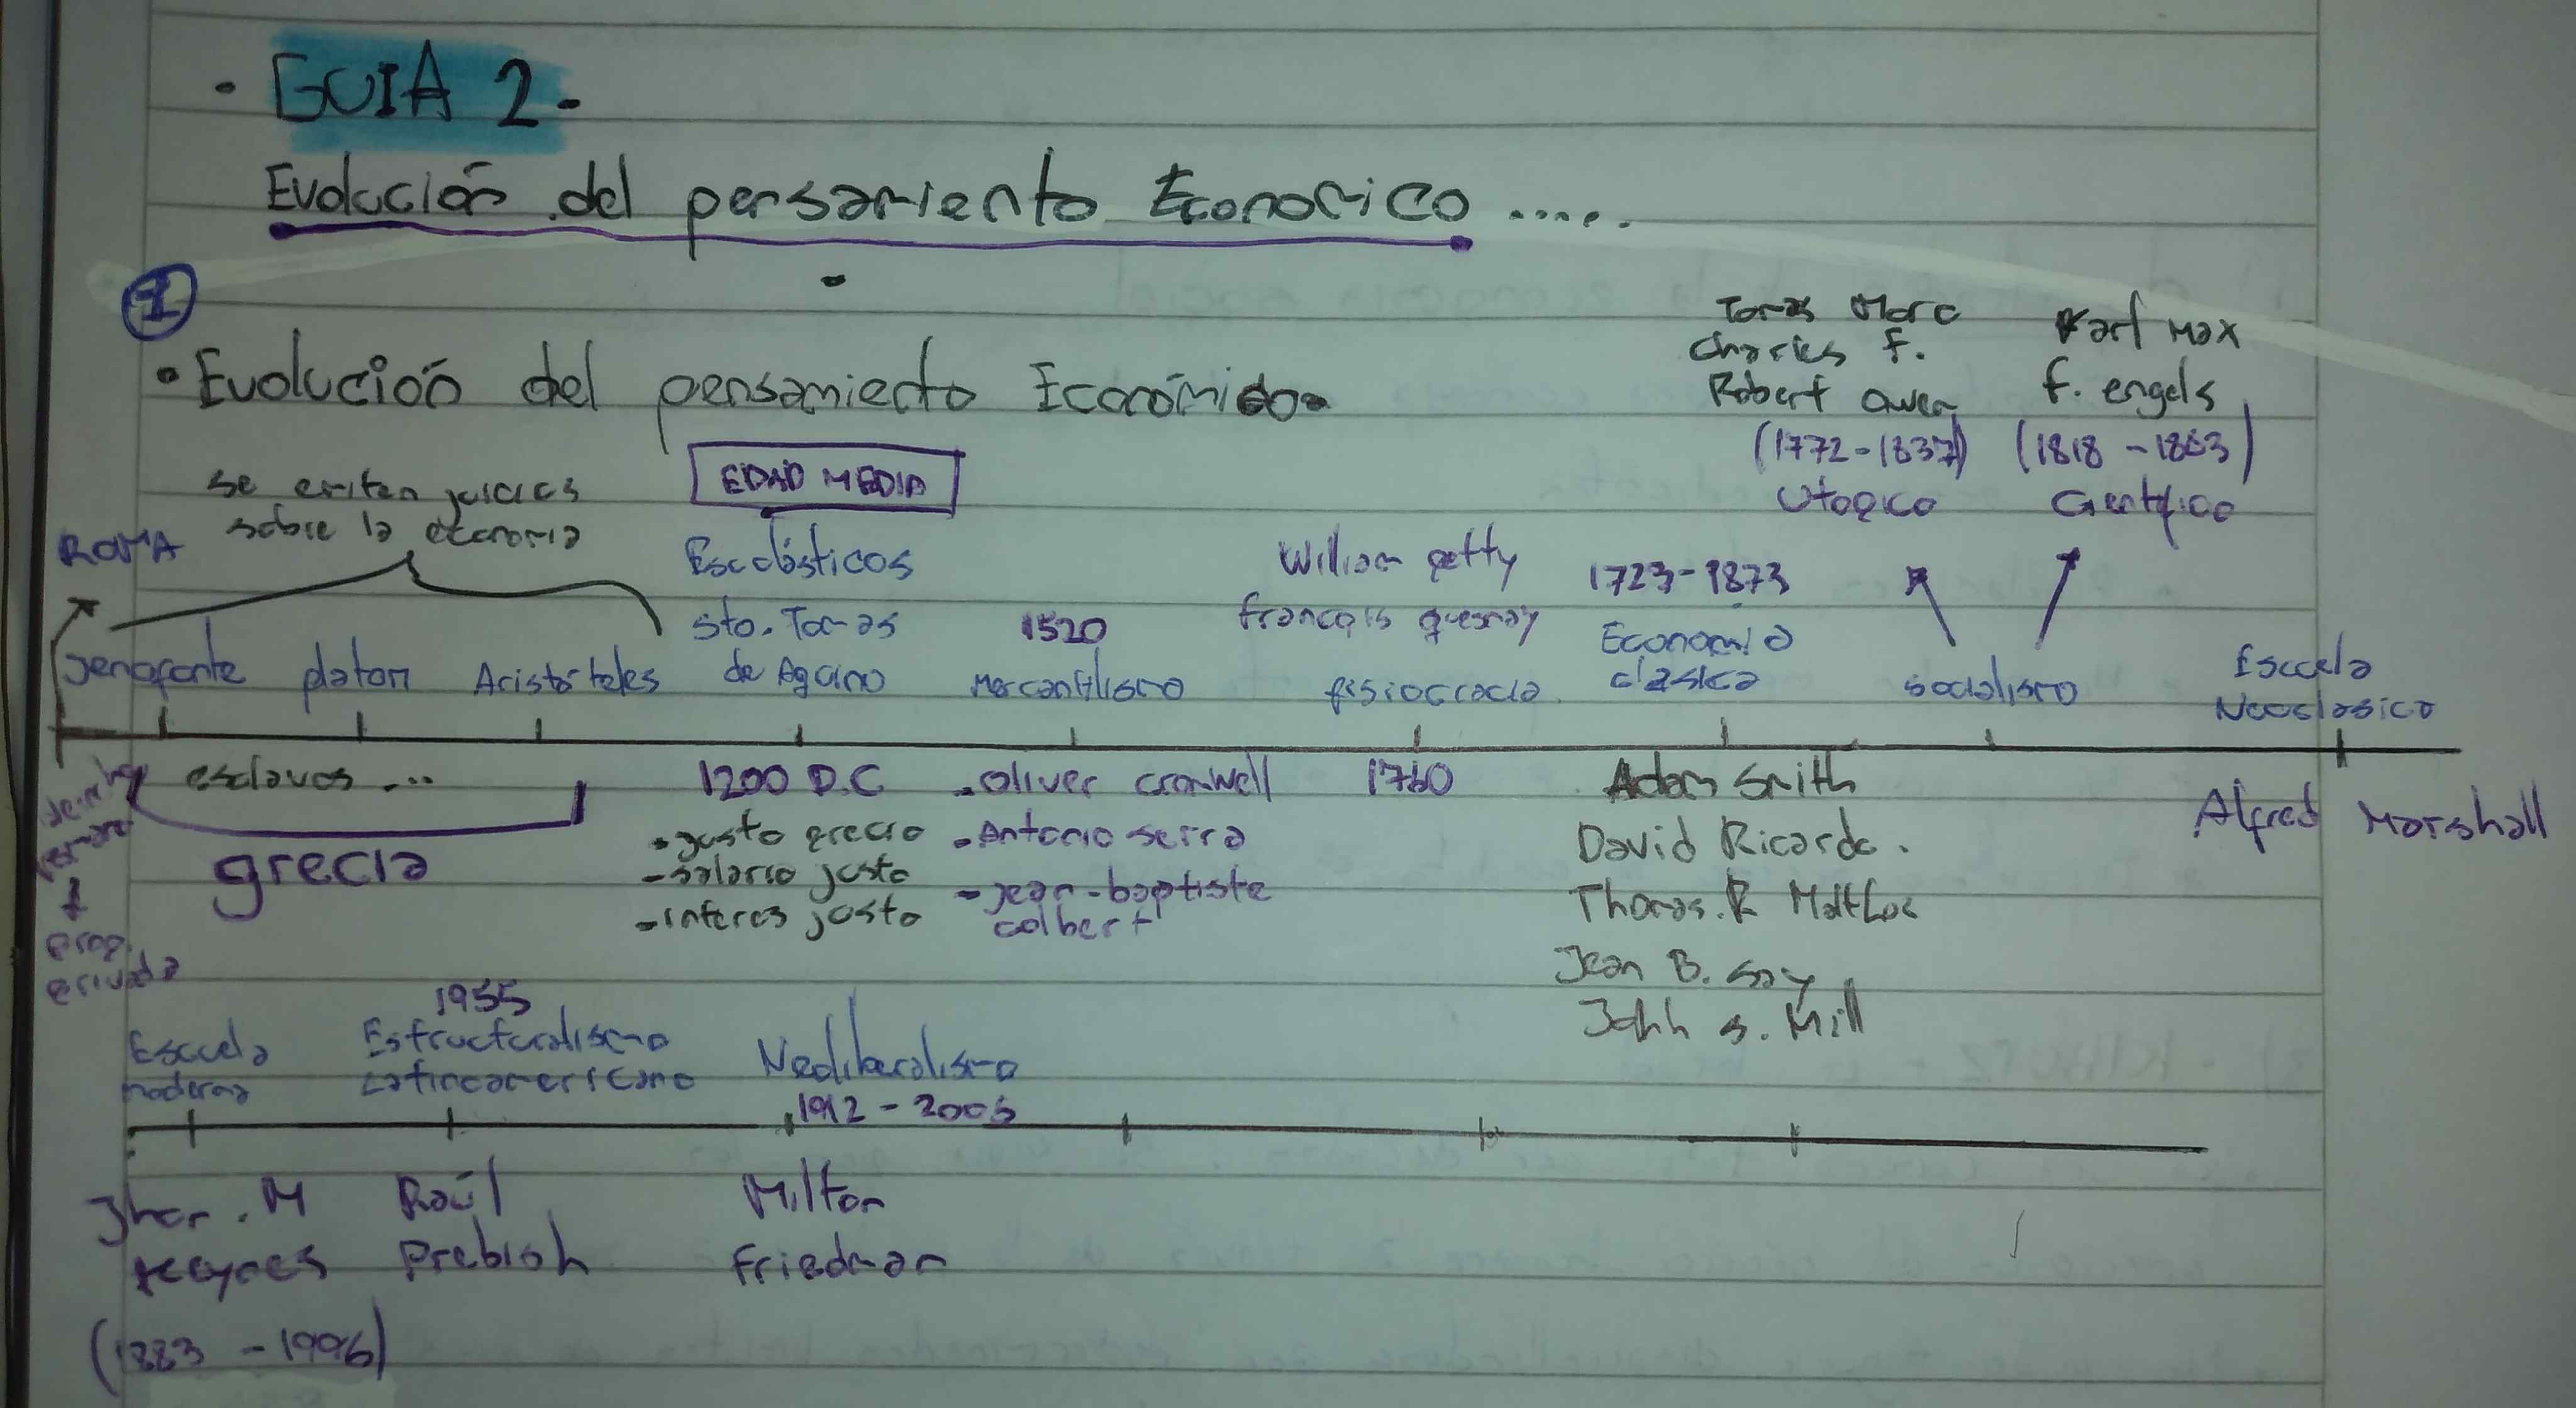 - GUIA 2 -
Evolución del pensamiento Economico .....
1
• Evolución del pensamiento Económico
Tomas Moro
Charles F.
Robert Owen
(1772-1837)
Utopico
Karl Max
F. engels
(1818 - 1883)
Cientifico
se emiten juicios
sobre la economia
ROMA
EDAD MEDIA
Escolásticos
sto. Tomas
de Aquino
Jenofonte
platon
Aristóteles
1520
Mercantilismo
William petty
françois quesnay
fisiocracia
1723-1873
Economia
clásica
socialismo
Escuela
Neoclasico
esclavos ...
grecia
prop.
privada
1200 D.C
• justo precio
- salario justo
- interes justo
- Oliver cromwell
- Antonio serra
- jean-baptiste
colbert
1760
Adam Smith
David Ricardo.
Thomas. R Malthus
Jean B. Say
John s. Mill
Alfred Marshall
Escuela
moderna
1955
Estructuralismo
Latinoamericano
Neoliberalismo
1912 - 2006
Jhon . M
keynes
(1883 - 1996)
Raúl
Prebish
Milton
Friedman